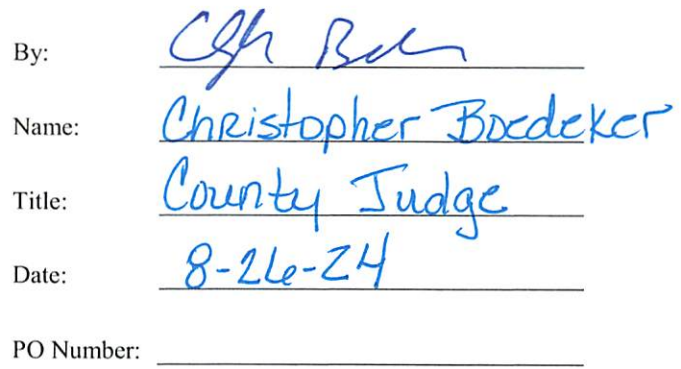 By:
Name: Christopher Boedeker
Title: County Judge
Date: 8-26-24
PO Number: